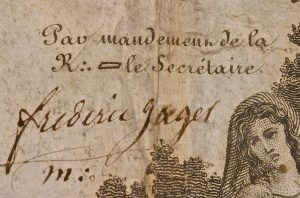 Par mandement de la
R:. le Secrétaire
frederic gaget
m:o